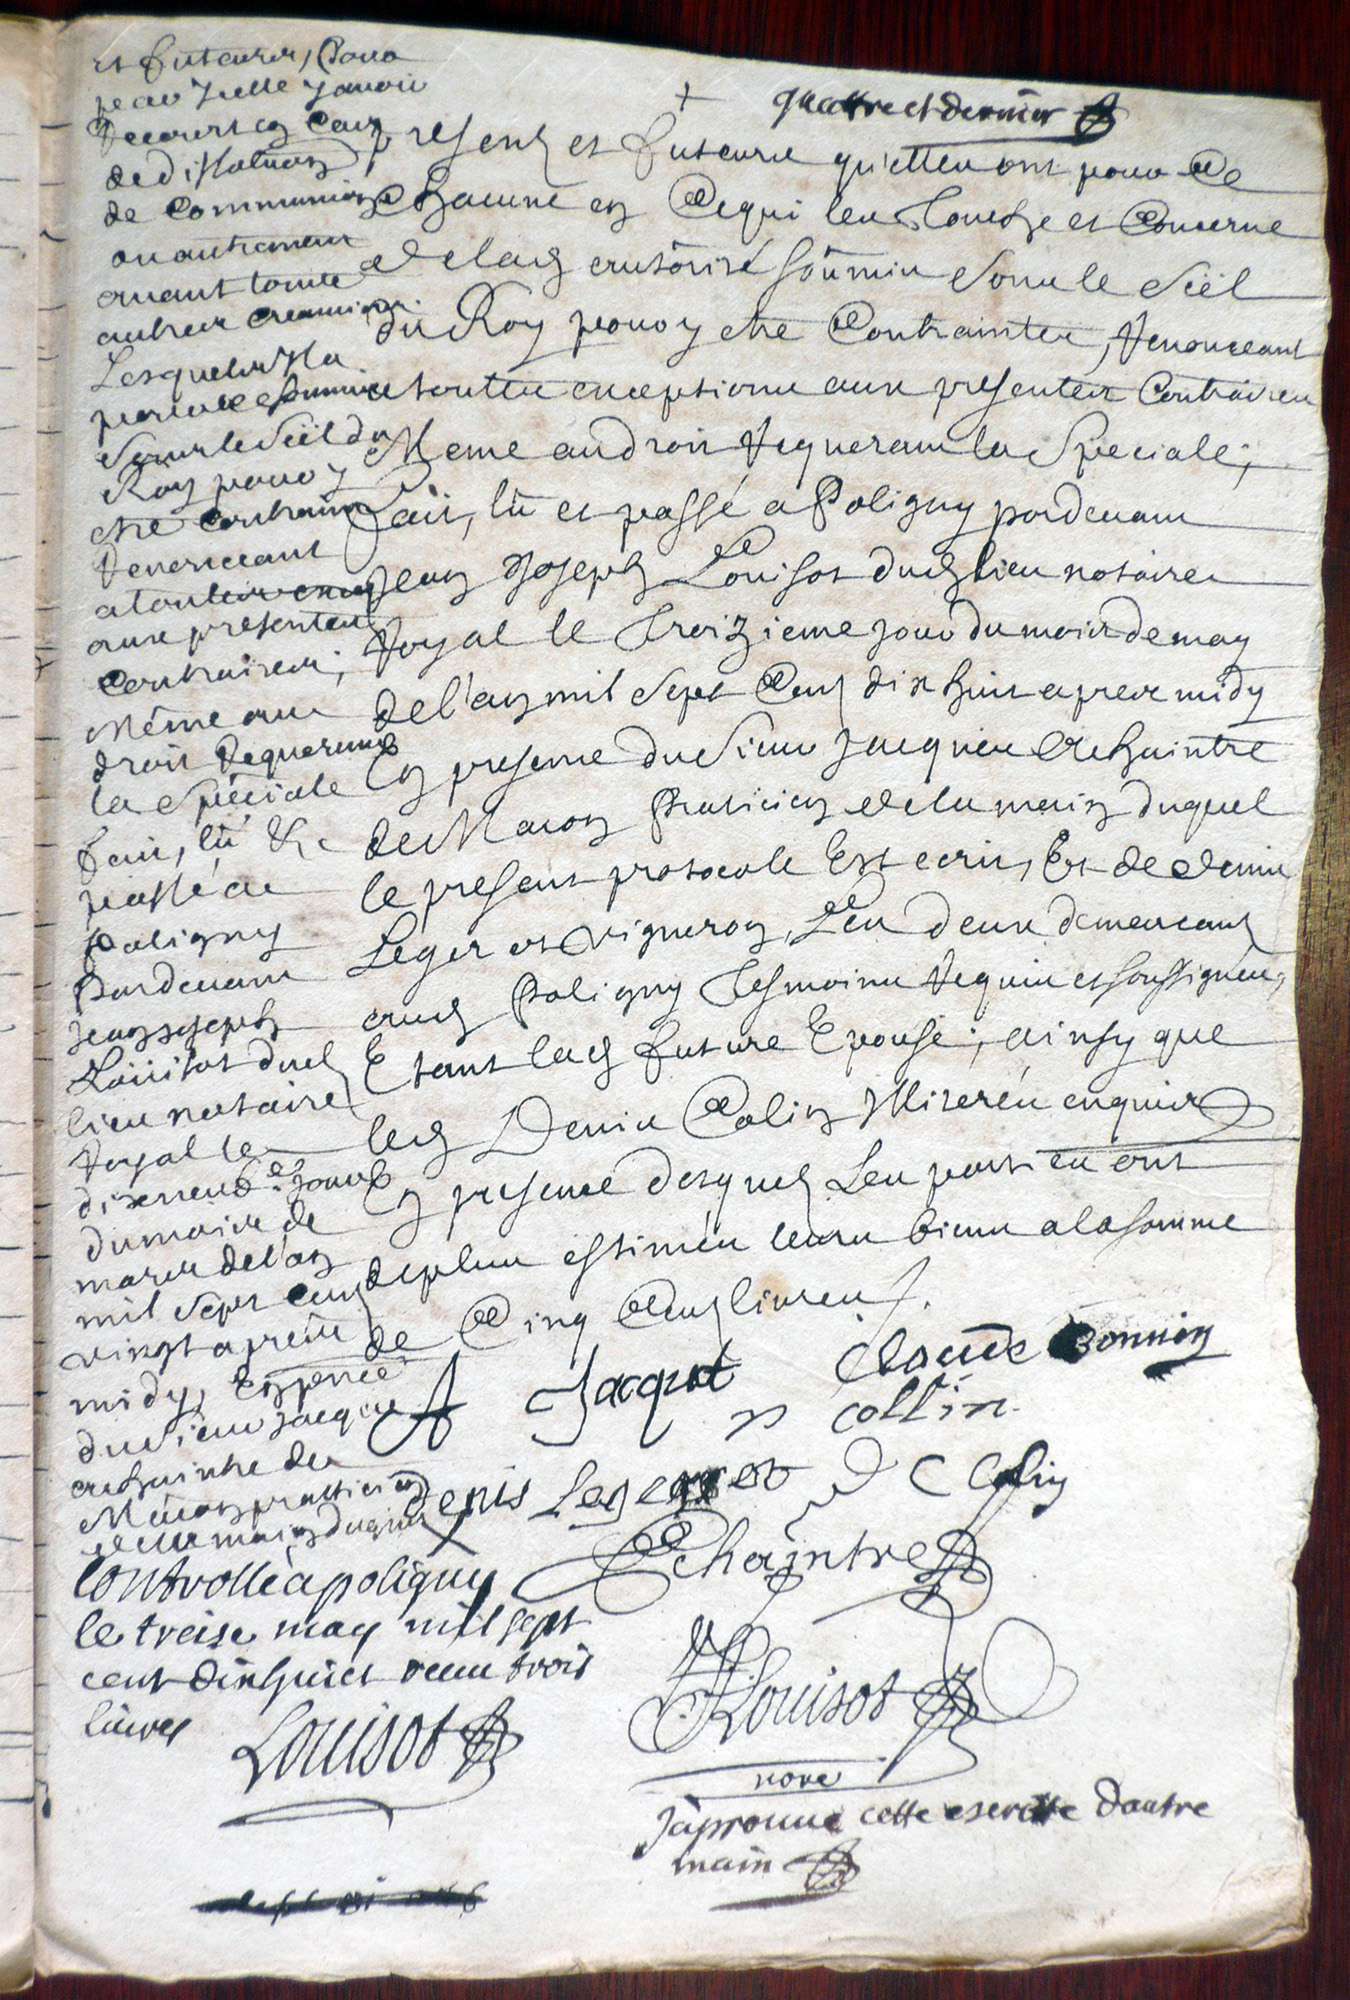 quattre et dernier
presents et futeure qu'elles ont pour ce
Chacune en Cequi les Touche et Concerne
delad autorisé soumis sous le scel
du Roy pour y etre Contraintes, Renonceant
a touttes exceptions aux presentes Contraires
Meme au droit requerant la speciale;
fait, lû et passé a Poligny pardevant
Jean Joseph Louisot dud lieu notaire
Royal le Treizieme jour du mois de may
de l'an mil sept Cens dix huit apres midy
En presence du sieur Jacques Echaintre
de Macon Praticien de la main duquel
le present protocole Est ecrit, Et de denis
Leger et vigneron, Les deux demeurans
aud Poligny Tesmoins requis et soussignés,
Etant lad future Epouse; ainsy que
led Denis Colin Miseréz enquis
En presence desquels Les parties ont
de plus estimées leurs biens a la somme
de Cinq Cens livres.
et futeurs, Pour
par Icelle
recours en Cas
de dissolution
de Communion
ou autrement
avant toutes
autres creanciers
Lesquelles
soumises
sous le scel du
Roy pour y
etre Contraints
Renonceant
a touttes
aux presentes
Contraires;
Même au
droit Requerant
la speciale
fait, lû &
passé a
Poligny
Pardevant
Jean Joseph
Louisot dud
lieu notaire
Royal le
dixneufe jour
du mois de
mars de l'an
mil sept cens
vingt apres
midy, En pnce
du sieur Jacque
echaintre de
Mâcon pratticien
de la main duquel
Jacquot Claude Bonnin
n Collin
denis Leger D C Colin
Echaintre
Controllé a poligny
le treise may mil sept
cent dixhuict receu trois
livres
Louisot
JJLouisot
nore
J'aprouve cette escritte dautre
main